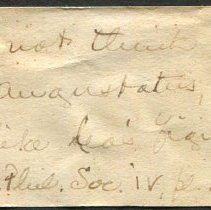 not think
angustatus,
like Lea's figu
Phil. Soc. IV, pl.